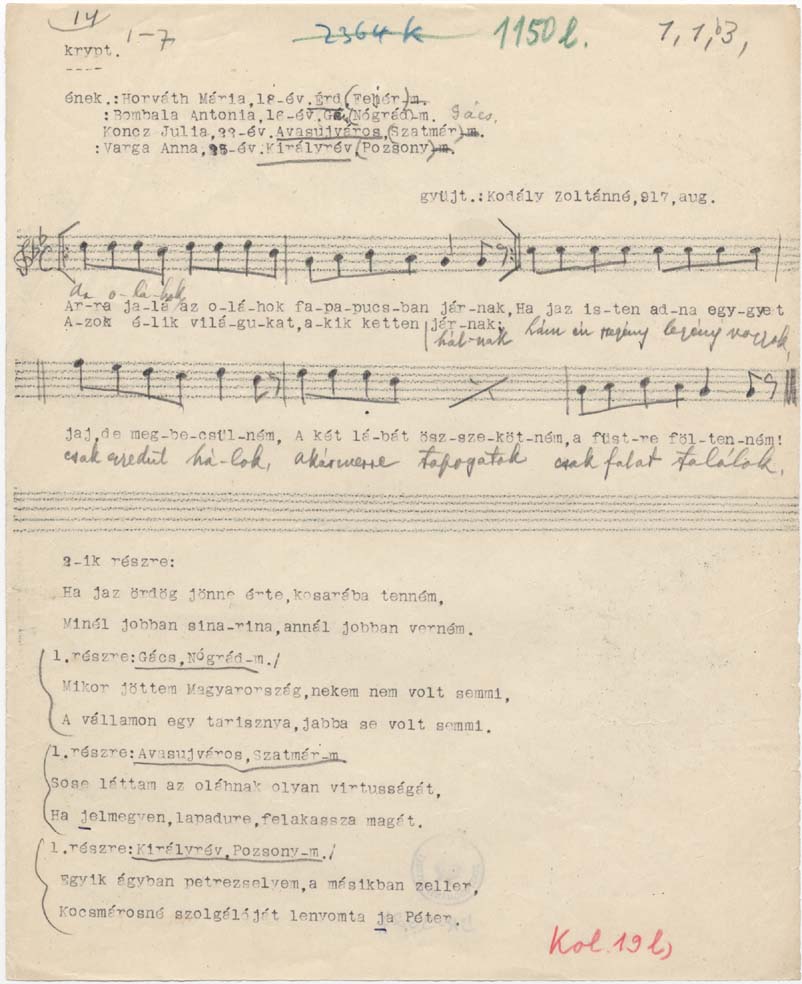 14
2364 k
1150 l.
1, 1, b3,
1-7
krypt.
ének.:Horváth Mária,18-év.Érd(Fehér)-m.
:Bombala Antonia,16-év.Gá(Nógrád-m. Gács,
Koncz Julia,22-év.Avasujváros,(Szatmár)-m.
:Varga Anna,25-év.Királyrév(Pozsony)-m.
gyüjt.:Kodály Zoltánné,917,aug.
Az o-lá-hok
Ar-ra ja-lá az o-lá-hok fa-pa-pucs-ban jár-nak,Ha jaz is-ten ad-na egy-gyet
A-zok é-lik vilá-gu-kat,a-kik ketten jár-nak;
hál-nak hám én szegény legény vagyok,
jaj,de meg-be-csül-ném, A két lá-bát ösz-sze-köt-ném,a füst-re föl-ten-ném!
csak egyedül há-lok, akármerre tapogatok csak falat találok,
2-ik részre:
Ha jaz ördög jönne érte,kosarába tenném,
Minél jobban sina-rina,annál jobban verném.
1.részre:Gács,Nógrád-m./
Mikor jöttem Magyarország,nekem nem volt semmi,
A vállamon egy tarisznya,jabba se volt semmi.
1.részre:Avasujváros,Szatmár-m
Sose láttam az oláhnak olyan virtusságát,
Ha jelmegyen,lapadure,felakassza magát.
1.részre:Királyrév,Pozsony-m./
Egyik ágyban petrezselyem,a másikban zeller,
Kocsmárosné szolgálóját lenyomta ja Péter.
Kol. 19 l,